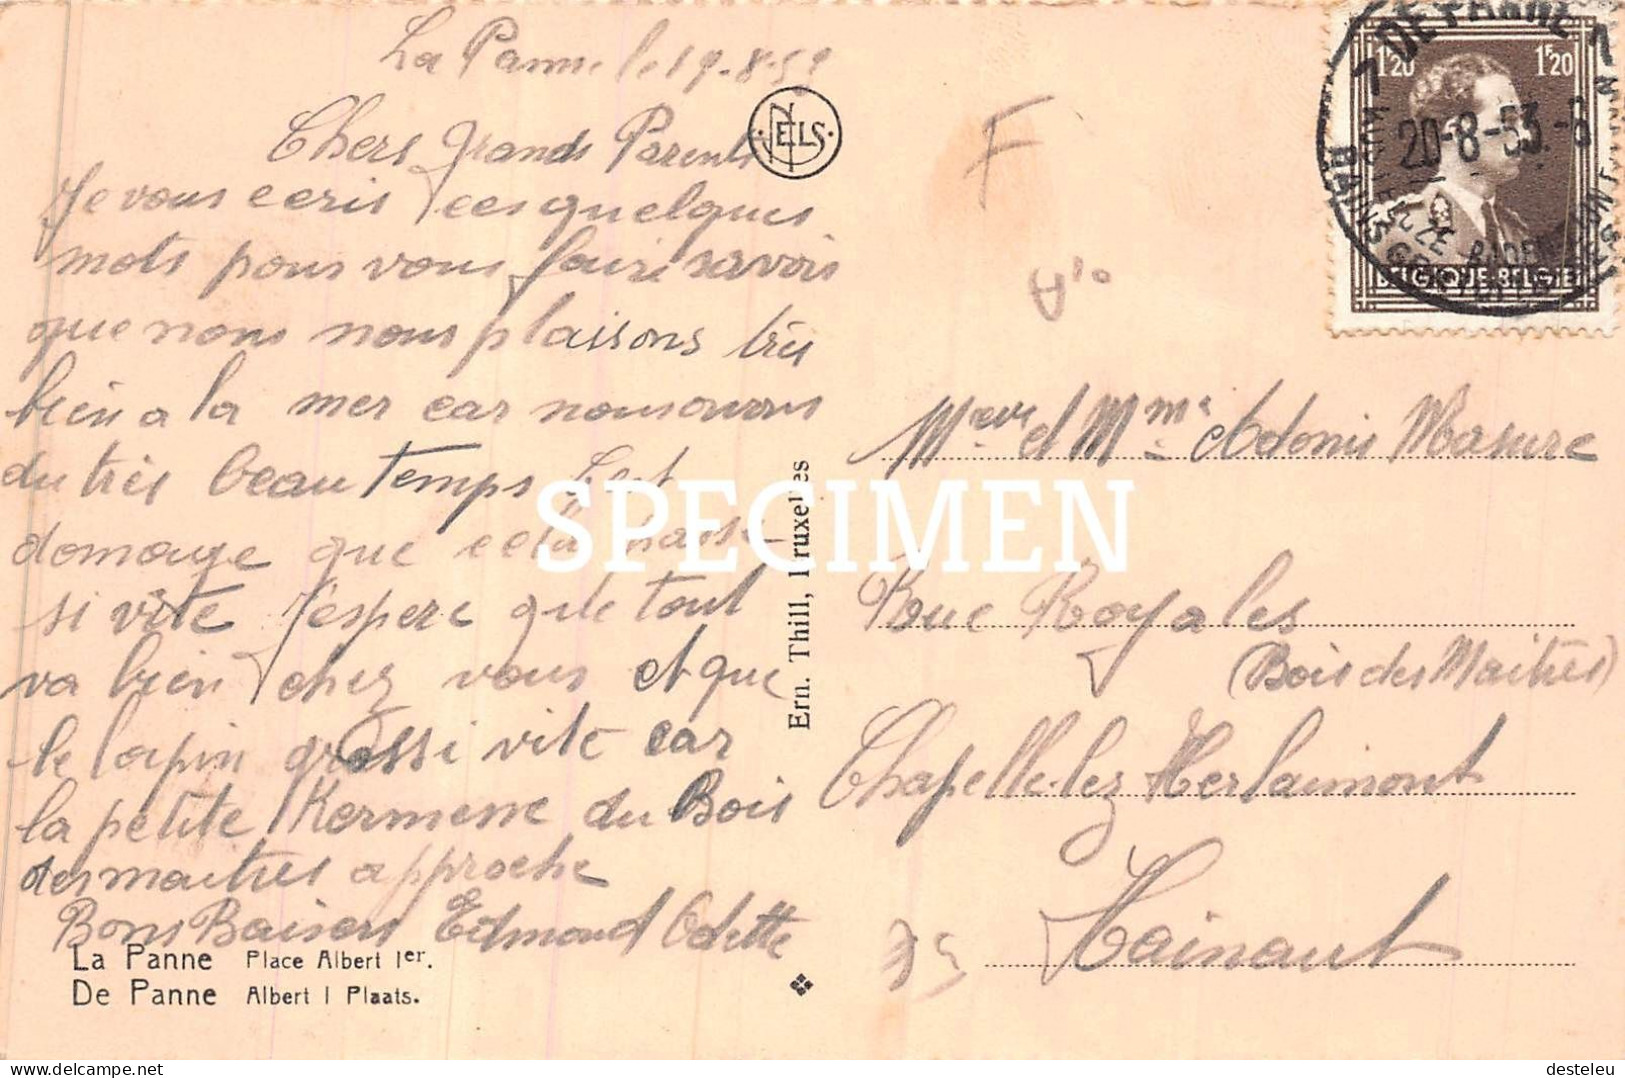 La Panne le 19-8-53
Chers grands Parents
Je vous ecris ces quelques
mots pour vous faire savoir
que nous nous plaisons très
bien a la mer car nous avons
du très beau temps C'est
domage que cela passe
si vite J'espere que tout
va bien chez vous et que
le lapin grossi vite car
la petite Kermesse du Bois
des maitres approche
Bons Baisers Edmond Odette
La Panne Place Albert Ier.
De Panne Albert I Plaats.
NELS
Ern. Thill, Bruxelles
SPECIMEN
F
DE PANNE
1F20 1F20
20-8-53
BAINS
BELGIQUE-BELGIE
Mr et Mme Adonis Masure
Rue Royales
(Bois des Maitres)
Chapelle-lez Herlaimont
Hainaut
desteleu